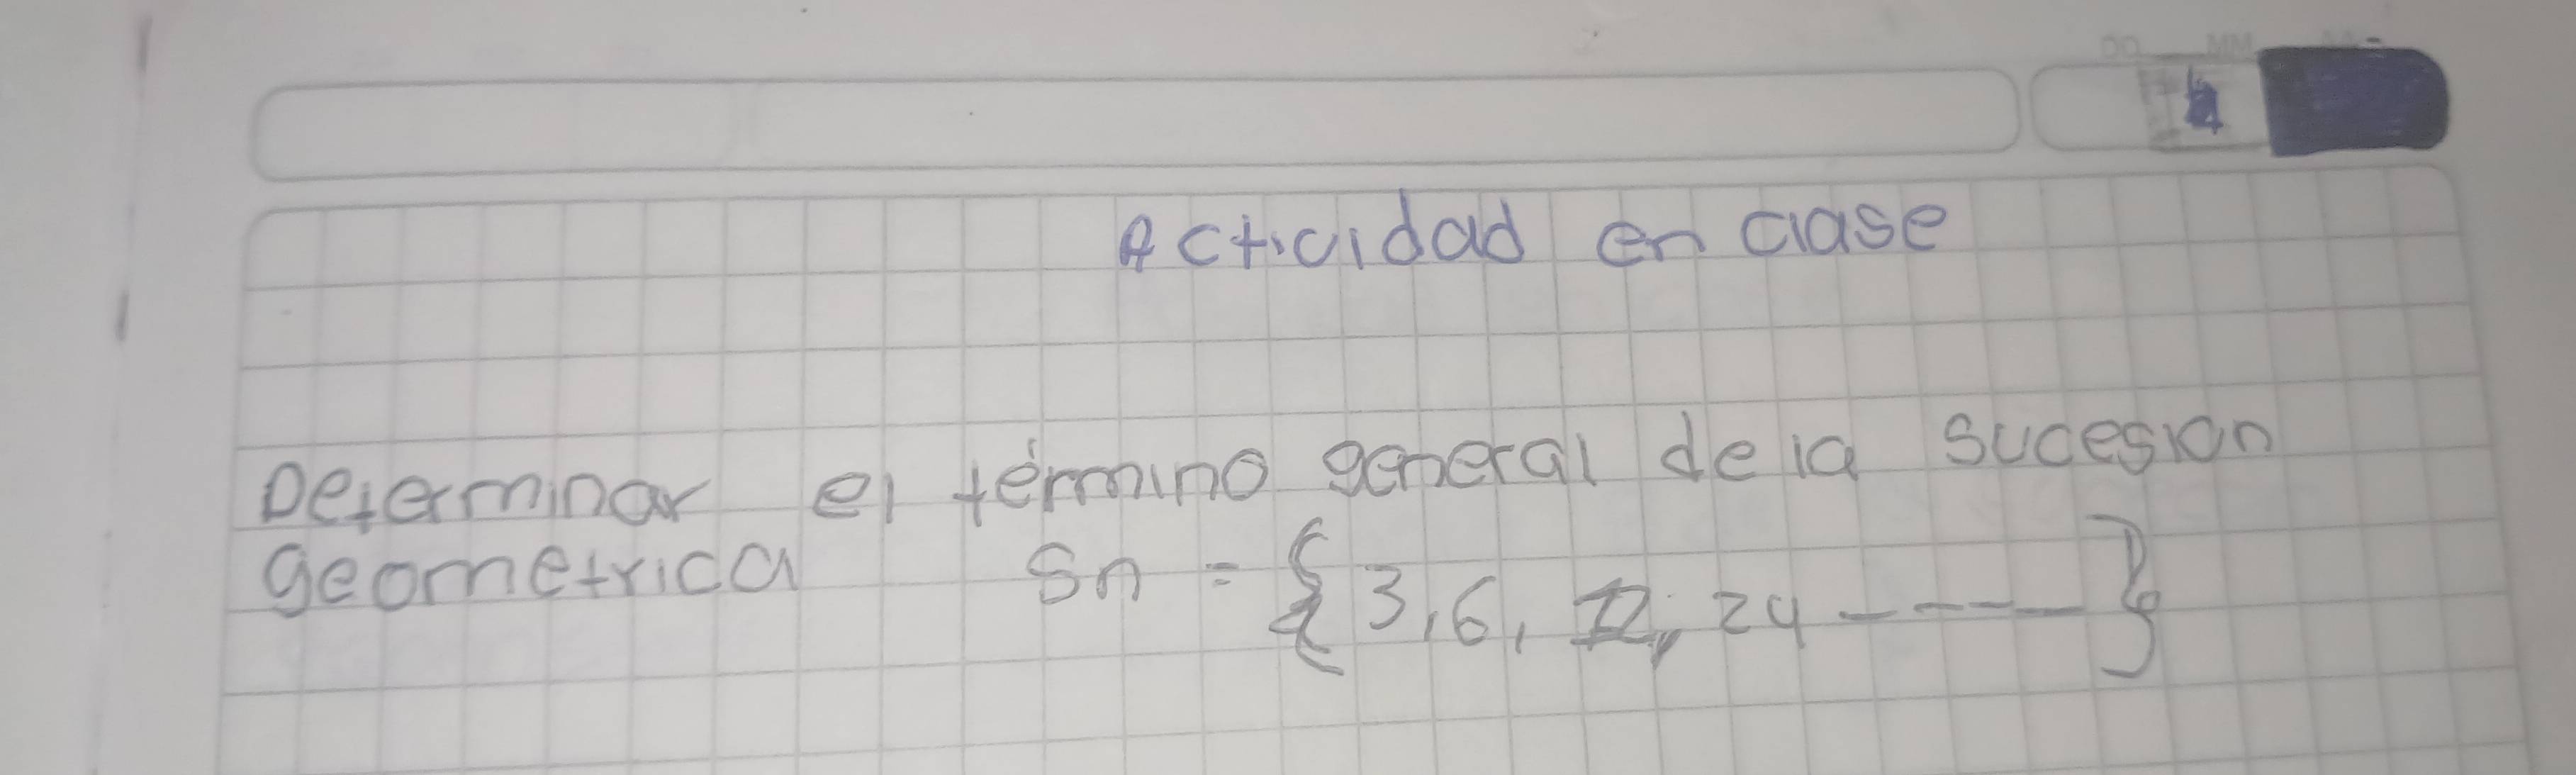 4
Acticidad en clase
Determinar el término general de la sucesion
geometrica Sn = { 3, 6, 12, 24 ---- }